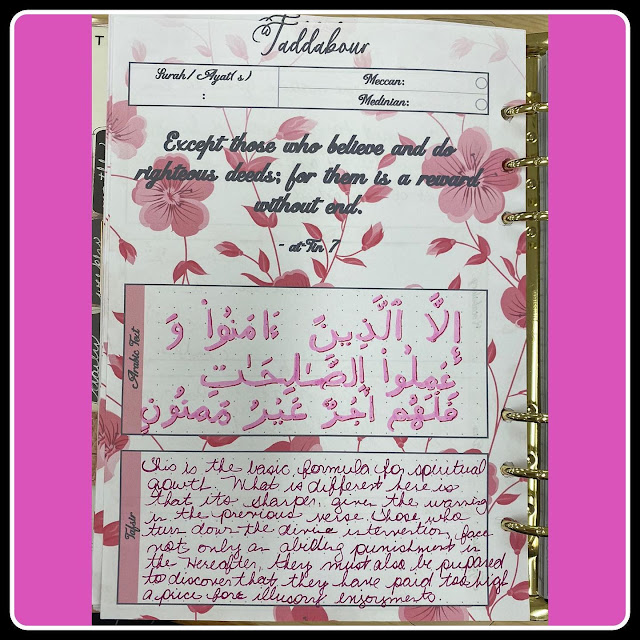 Taddabour
Surah / Ayat(s)
:
Meccan:
Medinian:
Except those who believe and do
righteous deeds; for them is a reward
without end.
- at-Tin 7
Arabic Text
إِلَّا ٱلَّذِينَ ءَامَنُوا۟ وَ
عَمِلُوا۟ ٱلصَّـٰلِحَـٰتِ
فَلَهُمْ أَجْرٌ غَيْرُ مَمْنُونٍ
Tafsir
This is the basic formula for spiritual
growth. What is different here is
that its sharper, given the warning
in the previous verse. Those who
turn down the divine intervention, face
not only an abiding punishment in
the Hereafter, they must also be prepared
to discover that they have paid too high
a price for illusory enjoyments.